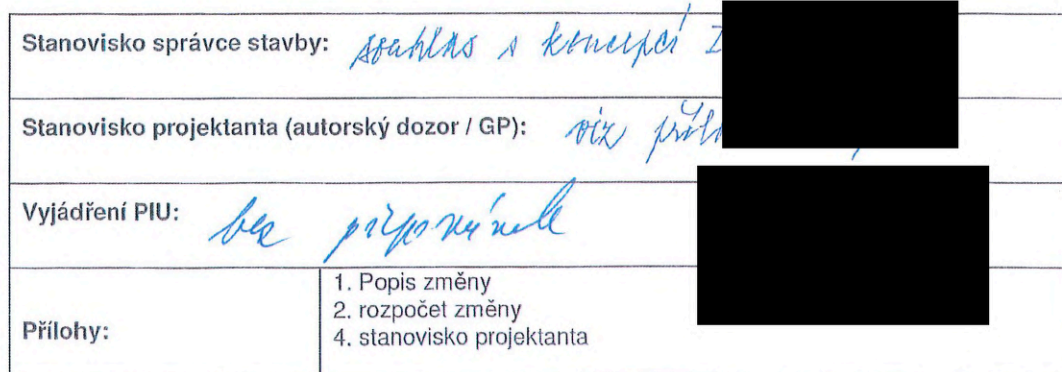 Stanovisko správce stavby: souhlas s koncepcí
Stanovisko projektanta (autorský dozor / GP): viz
Vyjádření PIU: bez připomínek
Přílohy:
1. Popis změny
2. rozpočet změny
4. stanovisko projektanta